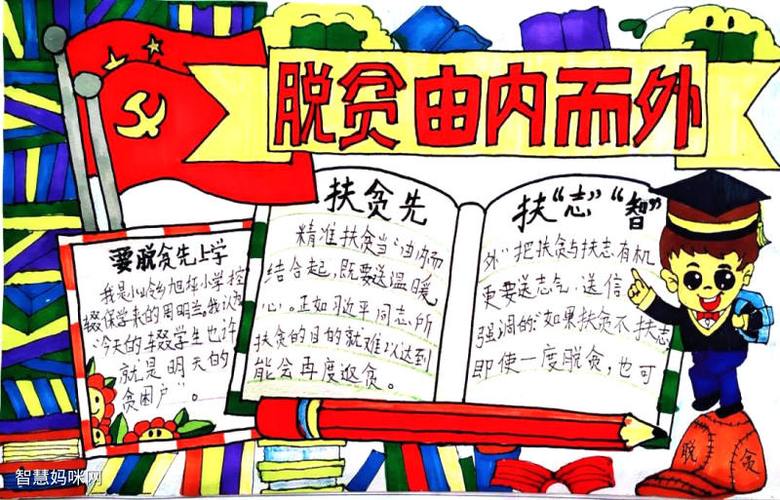 脱贫由内而外
扶贫先 扶“志”“智”
精准扶贫当“由内而外”把扶贫与扶志有机
结合起,既要送温暖 更要送志气、送信
心。正如习近平同志所强调的:“如果扶贫不扶志,
扶贫的目的就难以达到即使一度脱贫,也可
能会再度返贫。
要脱贫先上学
我是小 乡旭 小学控
辍保学来的周明兰。我认为
“今天的辍学生也许
就是明天的
贫困户”。
脱贫
智慧妈咪网